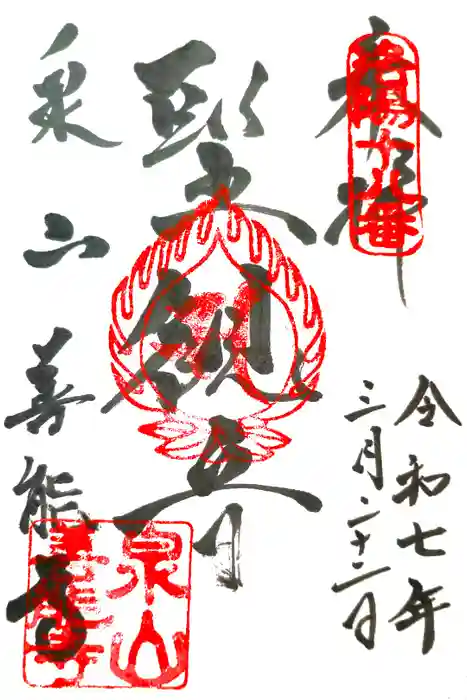 奉拝
洛陽十八番
令和七年
三月二十二日
聖観音
泉山善能寺
泉山
善能寺